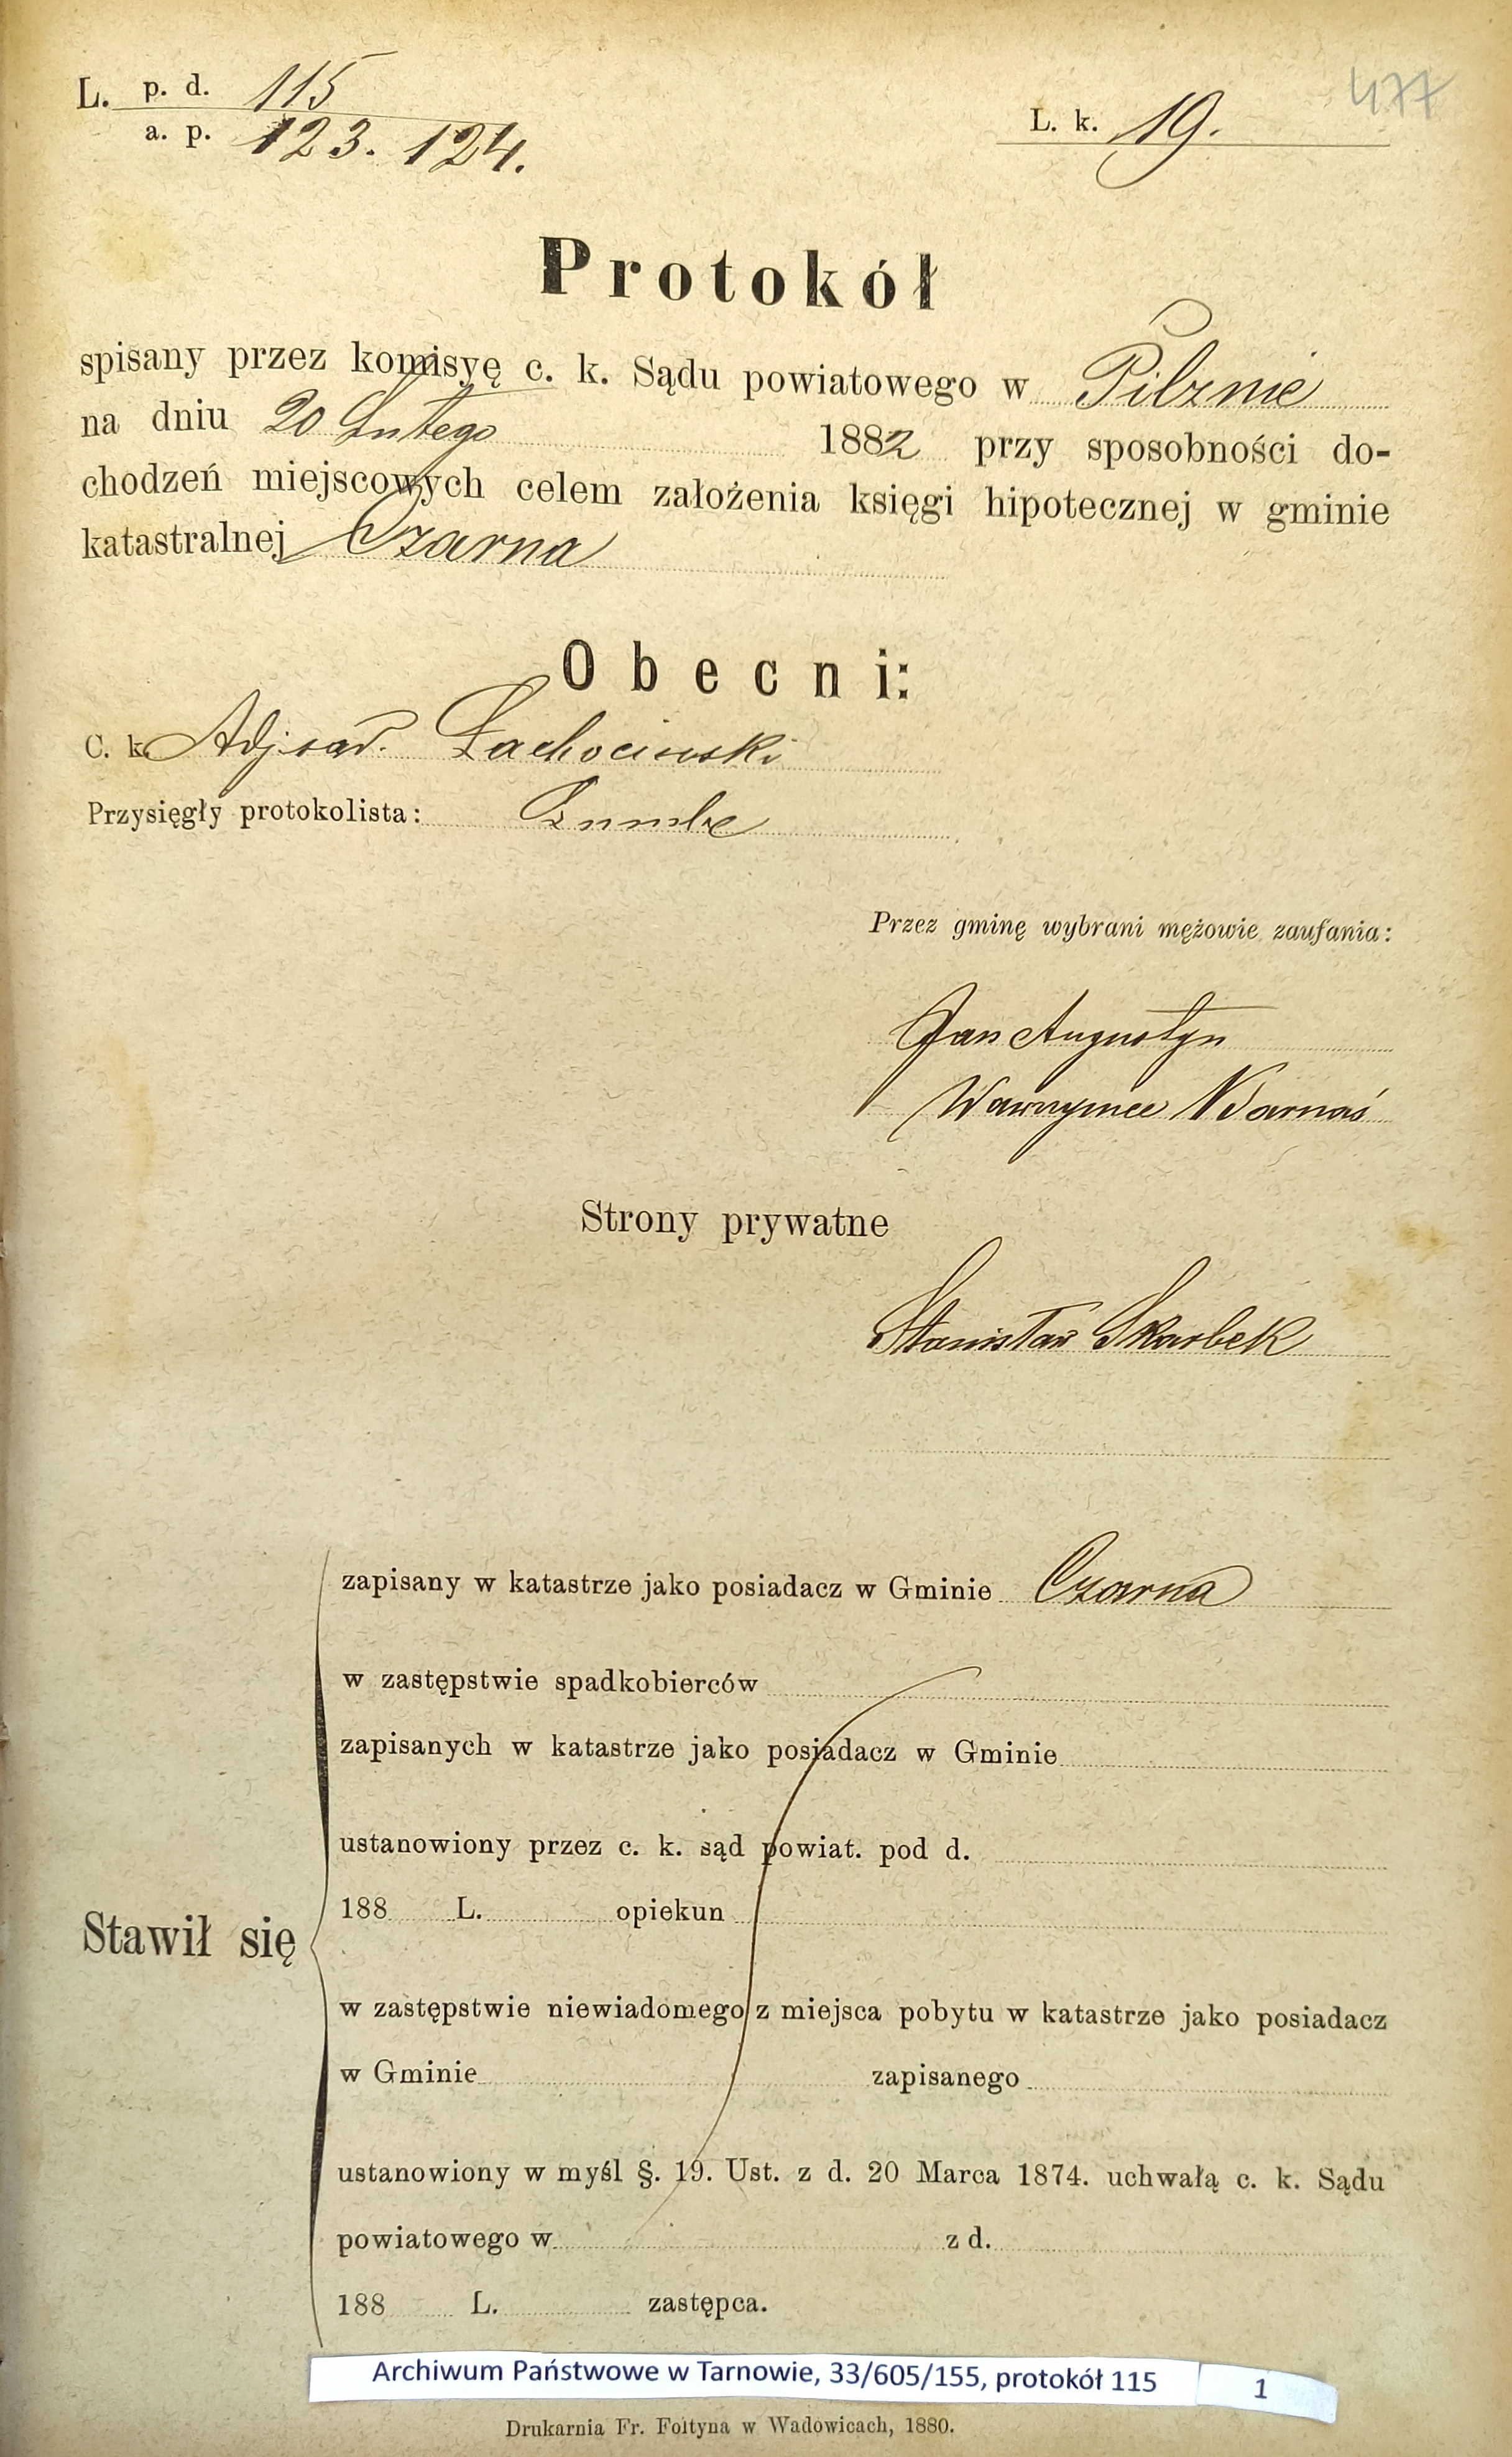 477
L. p. d. 115
a. p. 123. 124.
L. k. 19.
Protokół
spisany przez komisyę c. k. Sądu powiatowego w Pilznie
na dniu 20 Lutego 1882 przy sposobności do-
chodzeń miejscowych celem założenia księgi hipotecznej w gminie
katastralnej Czarna
Obecni:
C. k. Adj. sąd.
Przysięgły protokolista:
Przez gminę wybrani mężowie zaufania:
Jan Augustyn
Wawrzyniec
Strony prywatne
Stanisław Skarbek
zapisany w katastrze jako posiadacz w Gminie Czarna
w zastępstwie spadkobierców
zapisanych w katastrze jako posiadacz w Gminie
ustanowiony przez c. k. sąd powiat. pod d.
188 L. opiekun
Stawił się
w zastępstwie niewiadomego z miejsca pobytu w katastrze jako posiadacz
w Gminie zapisanego
ustanowiony w myśl §. 19. Ust. z d. 20 Marca 1874. uchwałą c. k. Sądu
powiatowego w z d.
188 L. zastępca.
Archiwum Państwowe w Tarnowie, 33/605/155, protokół 115 1
Drukarnia Fr. Foltyna w Wadowicach, 1880.